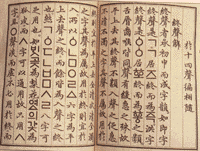 於十四聲偏相隨
終聲解
終聲者承初中而成字韻如即字
終聲是ㄱㄱ居즈終而為즉洪字
終聲是ㆁㆁ居ᅘᅩ終而為ᅘᅩᇰ之類
舌唇齒喉皆同聲有緩急之殊故
平上去其終聲不類入聲之促急
不清不濁之字其聲不厲故用於
終則宜於平上去全清次清全濁
之字其聲為厲故用於終則宜於
入所以ㆁㄴㅁㅇㄹㅿ六字為平
上去聲之終而餘皆為入聲之終
也然ㄱㆁㄷㄴㅂㅁㅅㄹ八字可
足用也如ᄇᆡᆺ곶為梨花여ᇫ의갗為
狐皮而ㅅ字可以通用故只用ㅅ
字且ㅇ聲淡而虛不必用於終而